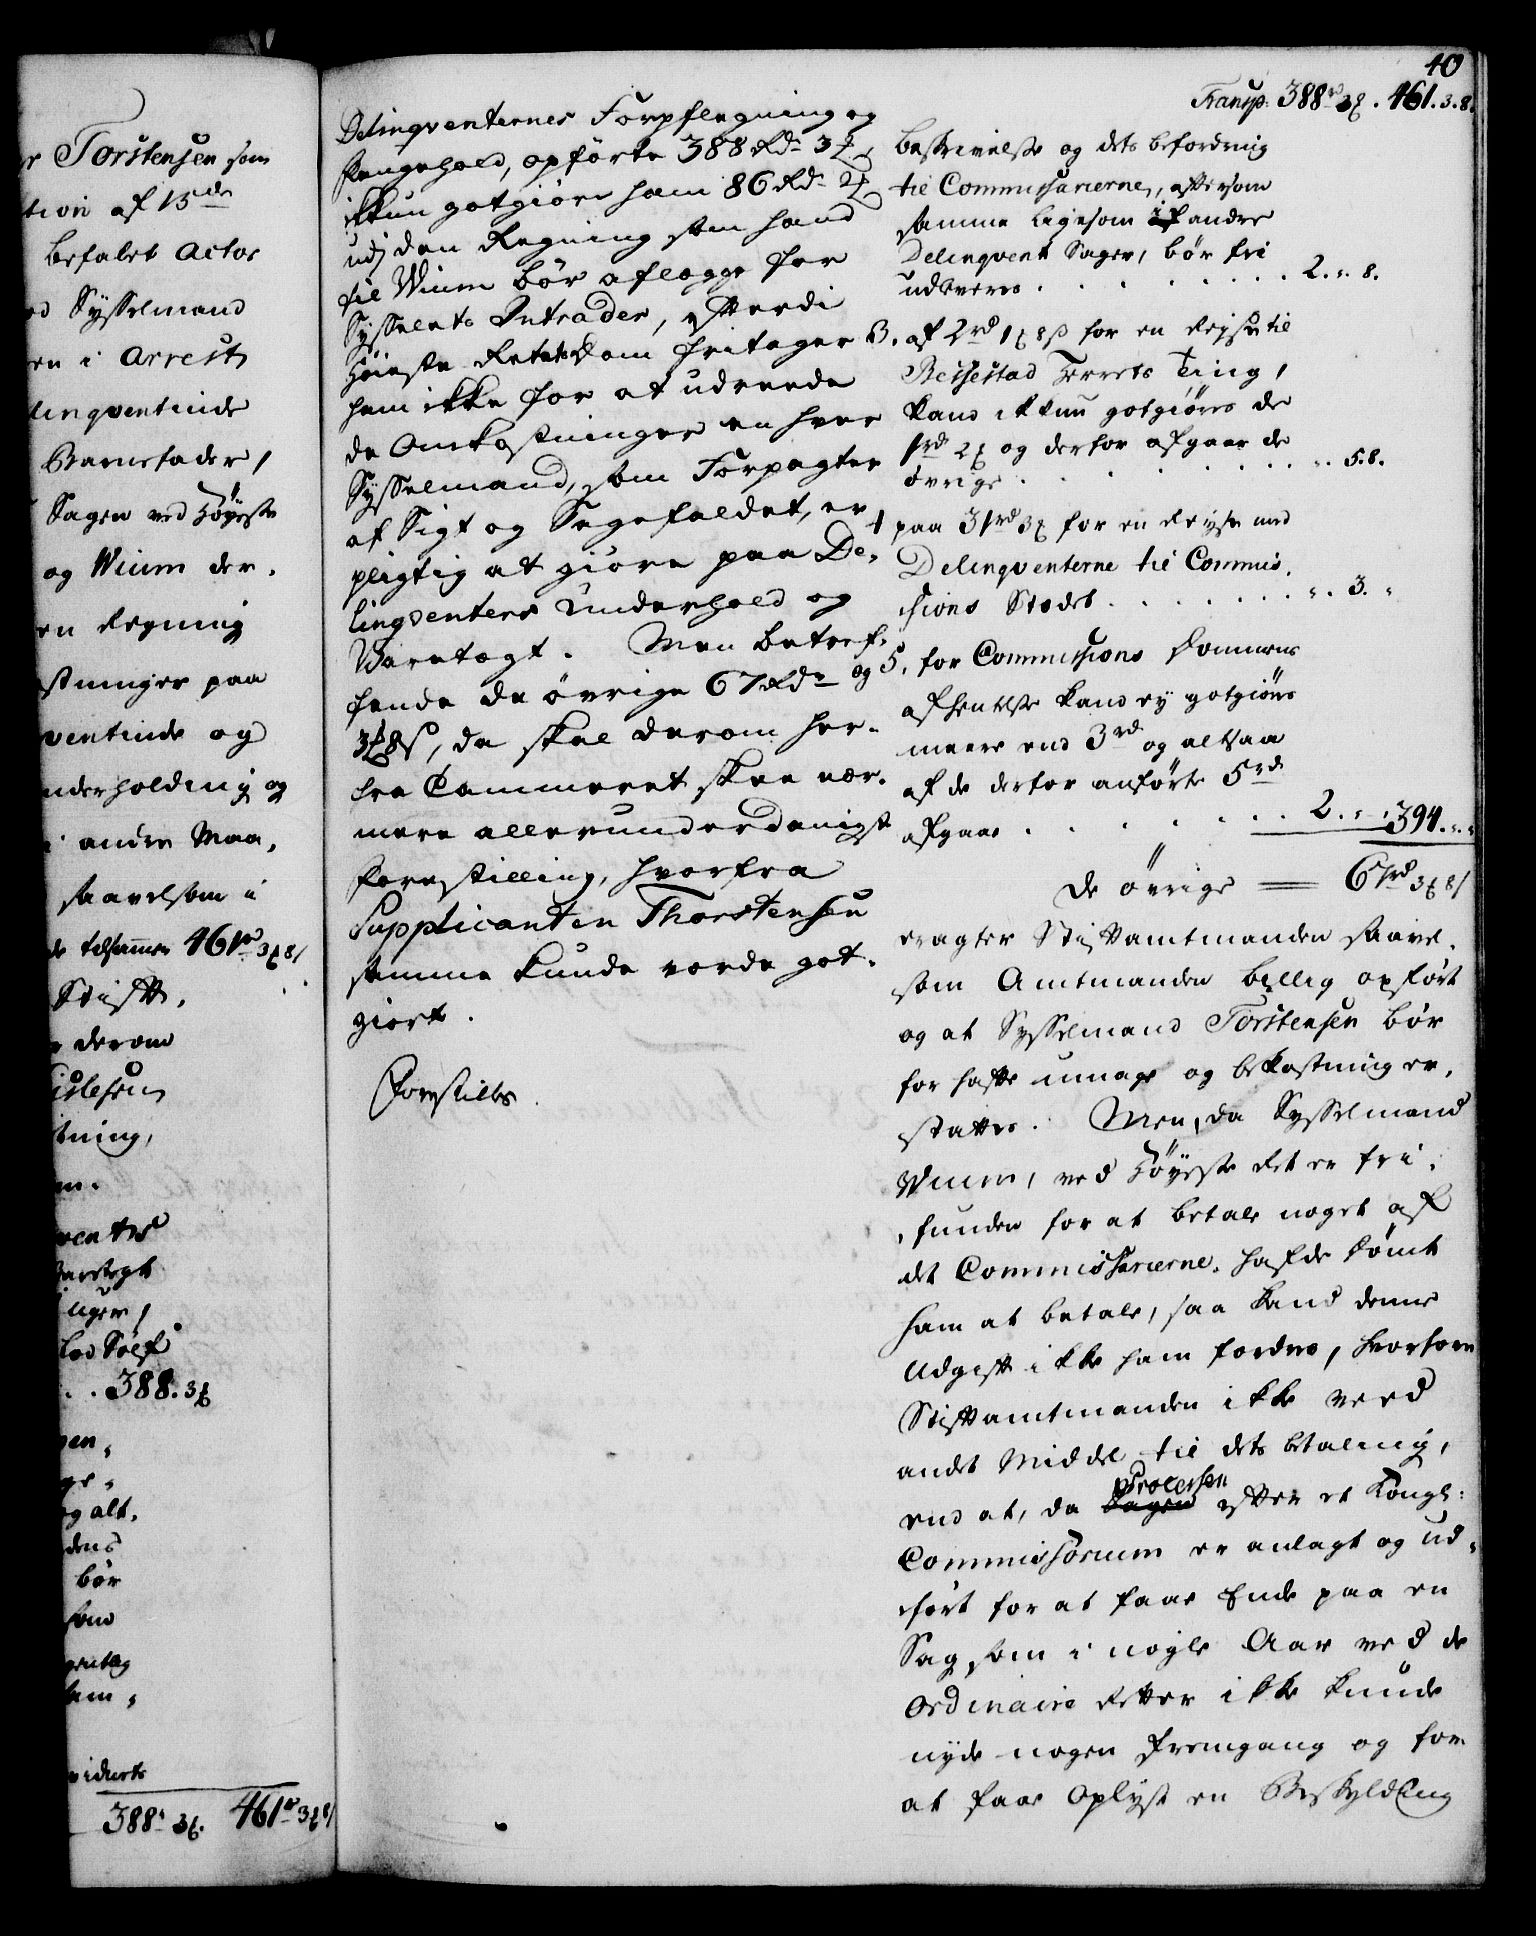 r Torstensen som
tion af 15de
befalet Actor
ed Sysselmand
en i Arrest
linqventinde
Barnefader,
Sagen ved Höyeste
og Wium der-
en Regning
stninger paa
ventinde og
nderholding og
i andre Maa,
saavelsom i
de tilsammen 461rd 3 8
Stift,
derom
islesen
tning,
m.
ventes
Varetegt
uger,
lod Self
. . 388. 3
en,
ge,
og alt,
dens
bör
som
gentlig
sam,
viderets
388. 3. 461rd 3 8
Delinqventernes Forpflegning og
Fangehold, opförte 388 Rdr 3
ikkun gotgiöre ham 86 Rdr 2
udj den Regning som hand
til Wium bör aflegge for
Sysselets Intrader, efterdi
Höieste Rets Dom fritager
ham ikke for at udreede
de Omkostninger en hver
Sysselmand, som Forpagter
af Sigt og Sagefaldet, er
pligtig at giöre paa De-
linqventers Underhold og
Varetægt. Men betref-
fende de övrige 67 Rdr og
3 8 s, da skal derom her-
fra Cammeret skee nær-
mere allerunderdanigst
forestilling, hvorfra
Supplicanten Thorstensen
samme kunde vorde got-
giort.
Forestilles.
40
Transp: 388rd 3 . 461. 3. 8.
beskrivelse og dets befordring
til Commissarierne, efftersom
samme ligesom i andre
Delinqvent Sager, bör fri
udleveres . . . . . . . . 2. " 8.
3. af 2rd 1 8 s for en Reyse til
Bessestad Herrets Ting,
kand ikkun gotgiöres de
1rd 2 og derfor afgaar de
övrige . . . . . . . . " 5. 8.
4 paa 31rd 3 for en Reyse med
Delinqventerne til Commis-
sions Stedet . . . . . . . " 3. "
5. for Commissions Dommens
afhentelse kand ey gotgiöres
meere end 3rd og altsaa
af de derfor anförte 5rd
afgaar . . . . . . . . 2. " " 394. " "
De övrige = 67rd 3 8 s
eragter Stiftamtmanden saavel-
som Amtmanden billig opfört
og at Sysselmand Torstensen bör
for hafte umage og bekostning er-
stattes. Men, da Sysselmand
Wium, ved Höyeste Ret er fri-
funden for at betale noget af
det Commissarierne hafde dömt
ham at betale, saa kand denne
Udgift ikke ham fordres, hvorfore
Stiftamtmanden ikke veed
andet Middel til dets betaling,
end at, da Sagen Processen efter et Kongl:
Commissorium er anlagt og ud-
fört for at faae Ende paa en
Sag som i nogle Aar ved de
Ordinaire Retter ikke kunde
nyde nogen fremgang og for
at faae Oplyst en Beskylding